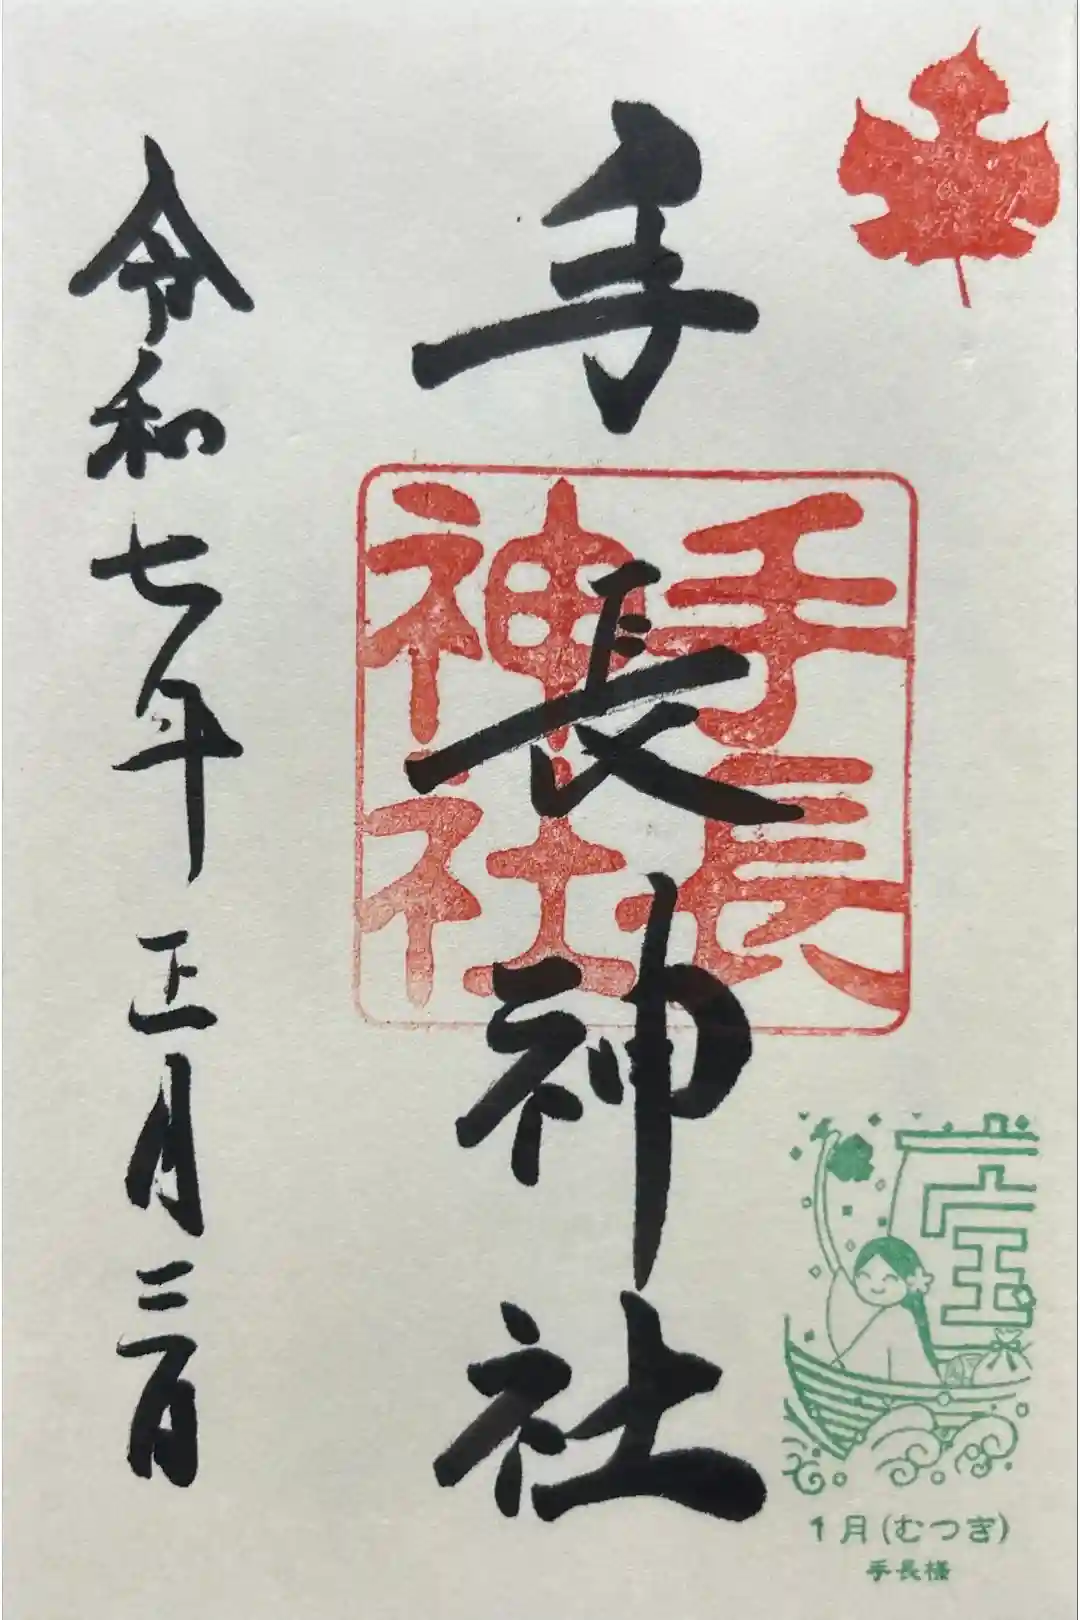 手長神社
手長
神社
令和七年正月二日
宝
1月(むつき)
手長様